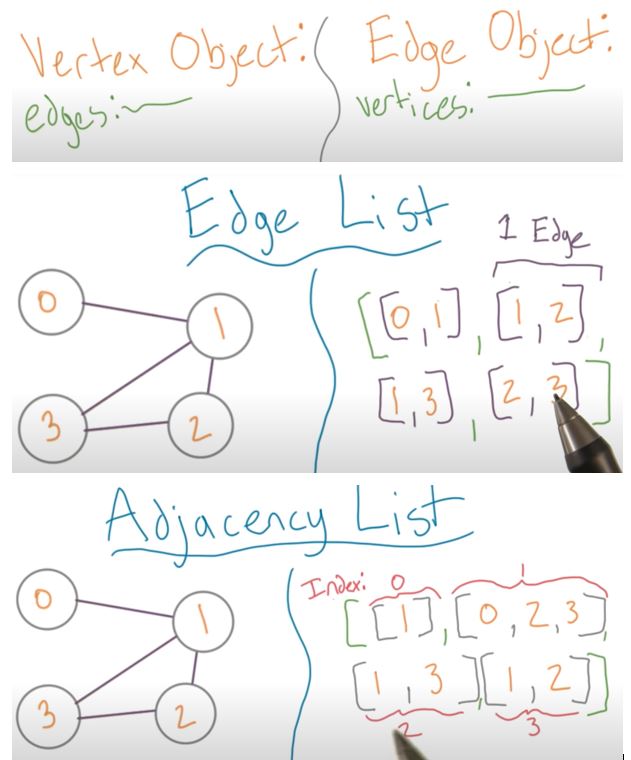 Vertex Object:
edges:
Edge Object:
vertices:
Edge List
1 Edge
0
1
3
2
[[0,1],[1,2],
[1,3],[2,3]]
Adjacency List
0
1
3
2
Index: 0 1
[[1],[0,2,3],
[1,3],[1,2]]
2 3